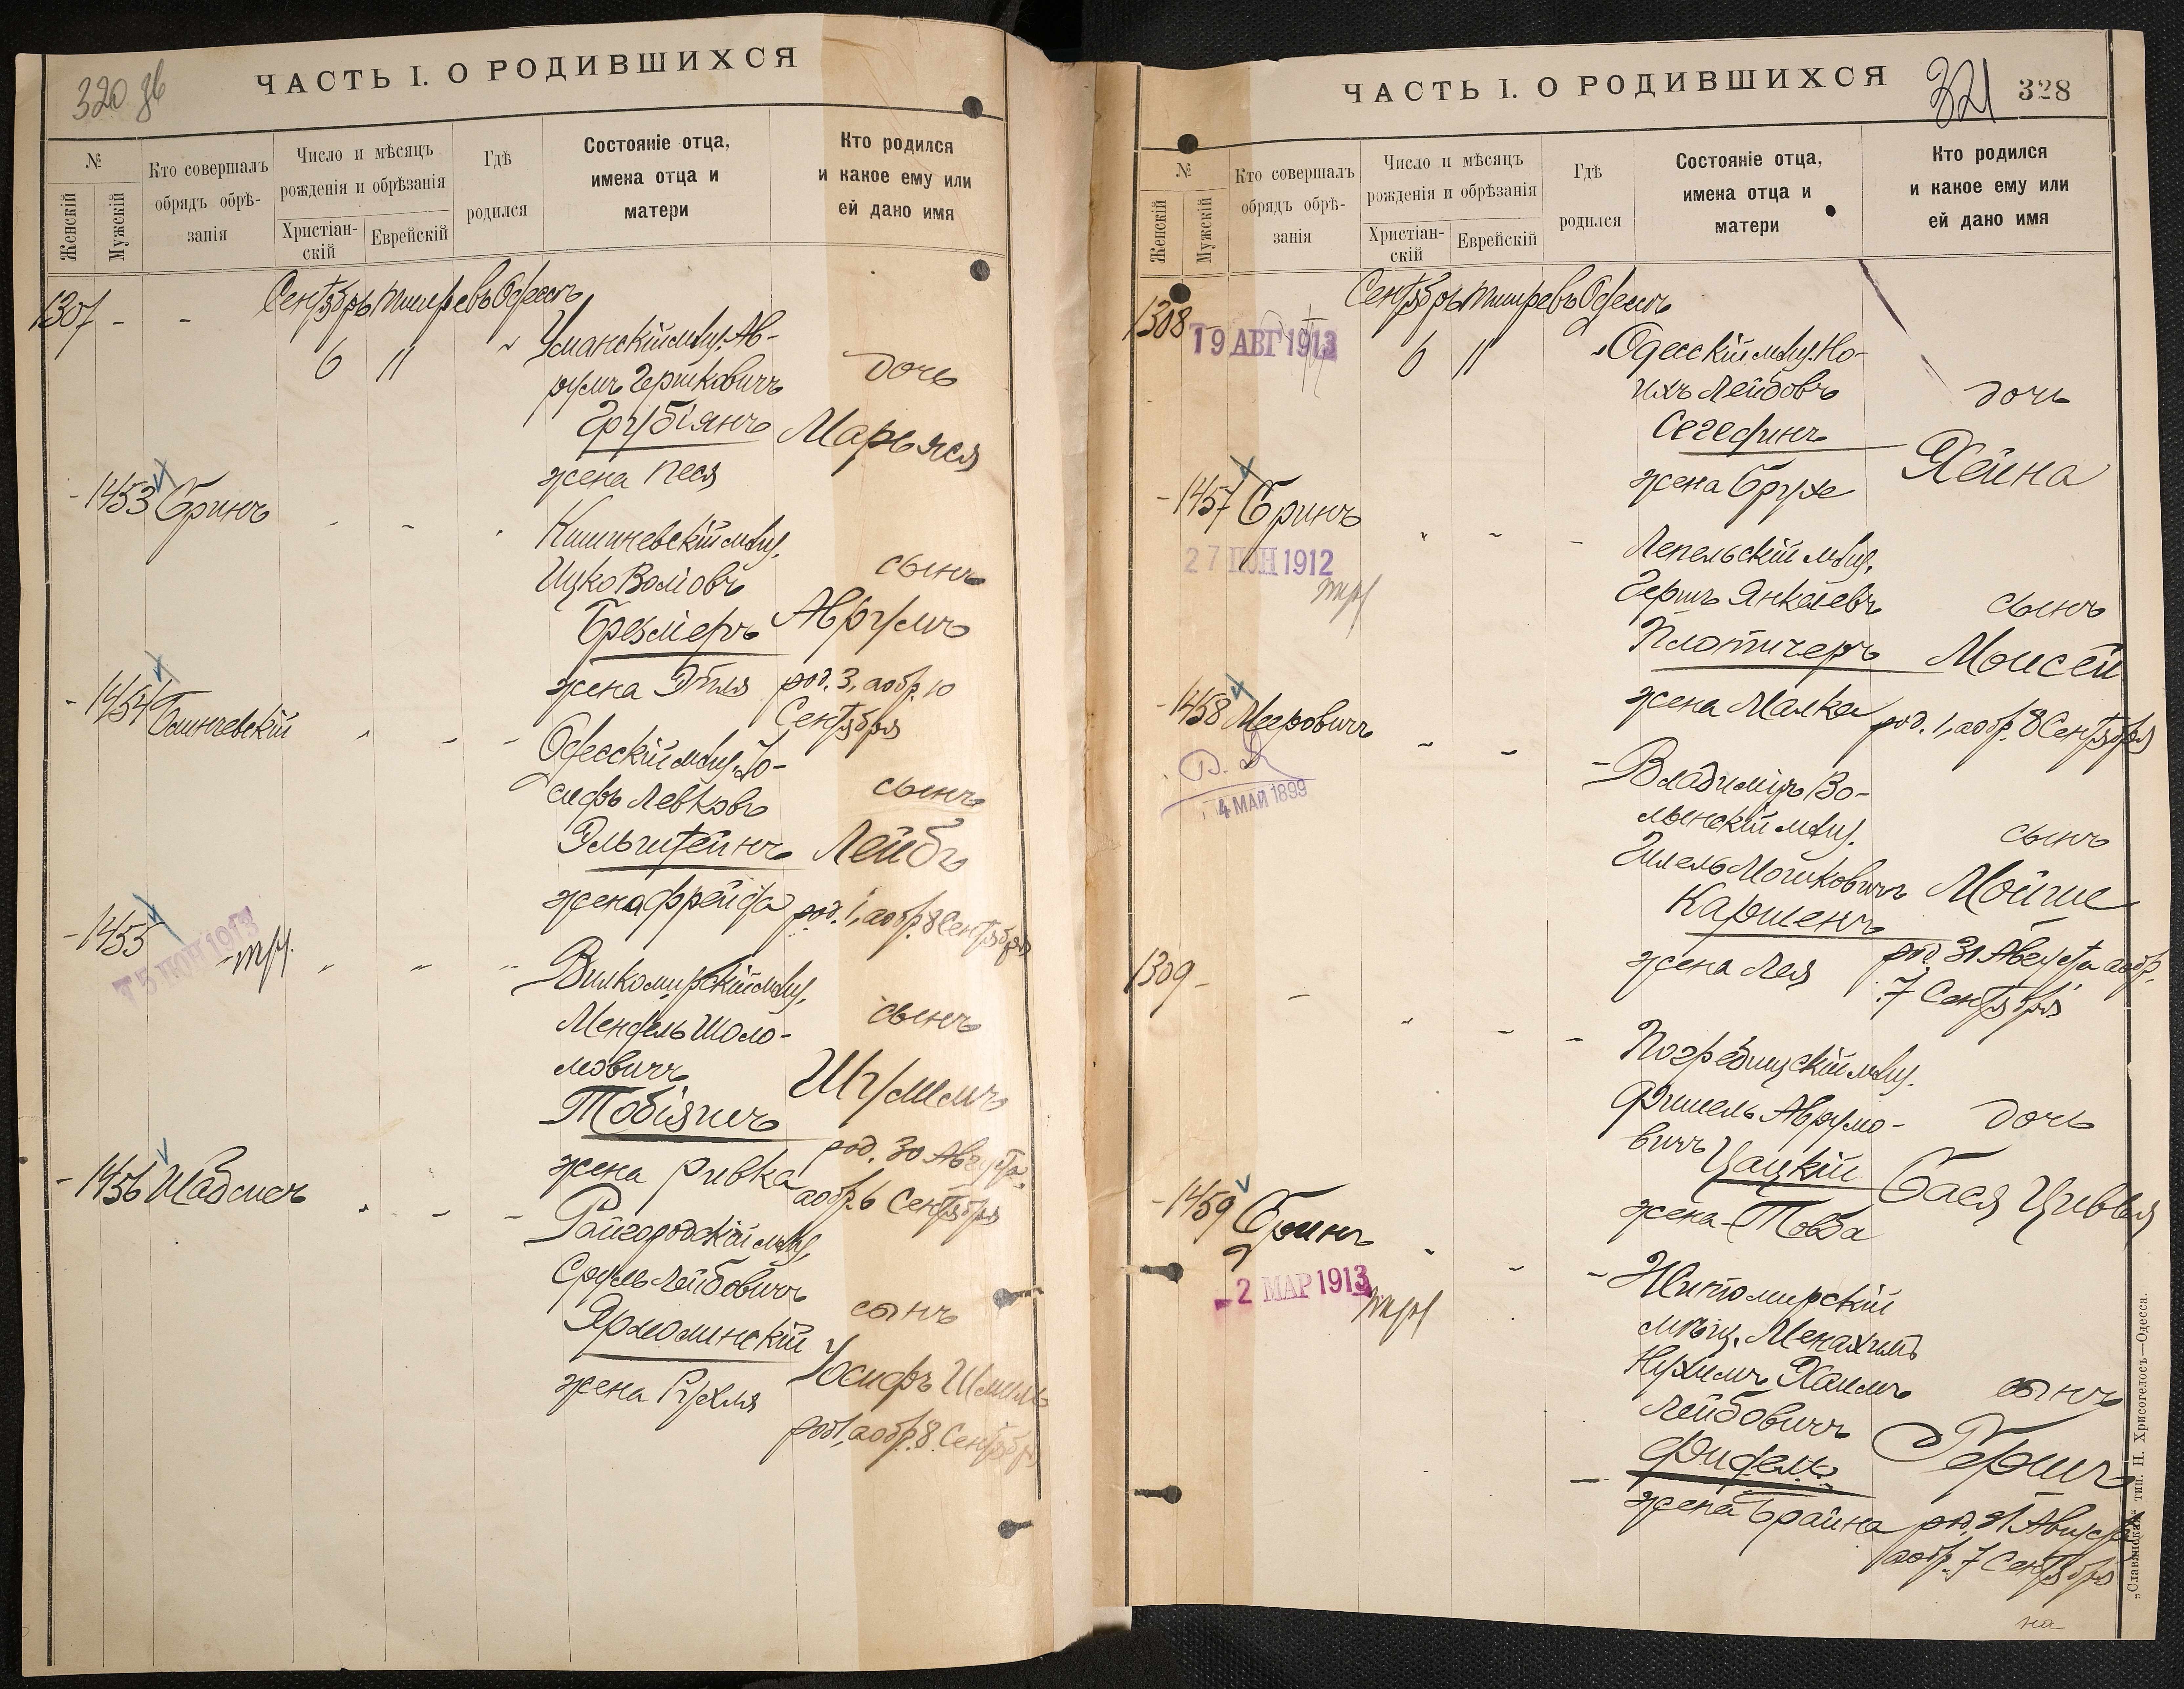 320 зв
ЧАСТЬ I. О РОДИВШИХСЯ
№
Женскій
Мужскій
Кто совершалъ
обрядъ обрѣ-
занія
Число и мѣсяцъ
рожденія и обрѣзанія
Христіан-
скій
Еврейскій
Гдѣ
родился
Состояніе отца,
имена отца и
матери
Кто родился
и какое ему или
ей дано имя
Сентябрь Тишре въ Одессѣ
1307 - - 6 11
Уманскій мѣщ. Ав-
румъ Гершковичъ
жена Песя
дочь
Марьяся
- 1453 Бринъ
Кишиневскій мѣщ.
Ицко Волговъ
жена Этля
сынъ
Аврумъ
род. 3, а обр. 10
Сентября
- 1454
Одесскій мѣщ. Іо-
сифъ Левковъ
Эльштейнъ
жена Фрейда
сынъ
Лейбъ
род. 1, а обр. 8 Сентября
- 1455
15 ІЮН 1913
Вилкомирскій мѣщ.
Мендель Шоло-
мовичъ
жена Ривка
сынъ
род. 30 Августа
а обр. 6 Сентября
- 1456 Шабсисъ
Райгородскій мѣщ.
Сруль Лейбовичъ
Ярмолинскій
жена Рухля
сынъ
Іосифъ Шмиль
род. 1, а обр. 8 Сентября
ЧАСТЬ I. О РОДИВШИХСЯ
321
328
№
Женскій
Мужскій
Кто совершалъ
обрядъ обрѣ-
занія
Число и мѣсяцъ
рожденія и обрѣзанія
Христіан-
скій
Еврейскій
Гдѣ
родился
Состояніе отца,
имена отца и
матери
Кто родился
и какое ему или
ей дано имя
Сентябрь Тишре въ Одессѣ
1308 6 11
19 АВГ 1913
Одесскій мѣщ. Но-
ихъ Лейбовъ
Сегединъ
жена Брухе
дочь
Хейна
- 1457 Бринъ
27 ІЮН 1912
Лепельскій мѣщ.
Гершъ Янкелевъ
Плотичеръ
жена Малка
сынъ
Моисей
род. 1, а обр. 8 Сентября
- 1458 Мееровичъ
4 МАЙ 1899
Владимиръ Во-
лынскій мѣщ.
Гилель Мошковичъ
Каршенъ
жена Лея
сынъ
Мойше
род. 31 Августа а обр.
7 Сентября
1309 - -
Погребищскій мѣщ.
Фишель Аврумо-
вичъ Цацкій
жена Товба
дочь
Бася Цивья
- 1459 Бринъ
2 МАР 1913
Житомирскій
мѣщ. Менахимъ
Нухимъ Хаимъ
Лейбовичъ
Фидель
жена Брайна
сынъ
Гершъ
род. 31 Августа
а обр. 7 Сентября
на
„Славянская“ тип. Н. Хрисогелосъ—Одесса.